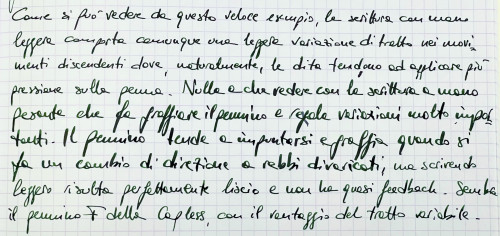 Come si può vedere da questo veloce esempio, la scrittura con mano
leggera comporta comunque una leggera variazione di tratto nei movi
menti discendenti dove, naturalmente, le dita tendono ad applicare più
pressione sulla penna. Nulla a che vedere con la scrittura a mano
pesante che fa graffiare il pennino e regala variazioni molto impor
tanti. Il pennino tende a impuntarsi e graffia quando si
fa un cambio di direzione a rebbi divaricati, ma scrivendo
leggero risulta perfettamente liscio e non ha quasi feedback. Sembra
il pennino F della Capless, con il vantaggio del tratto variabile.